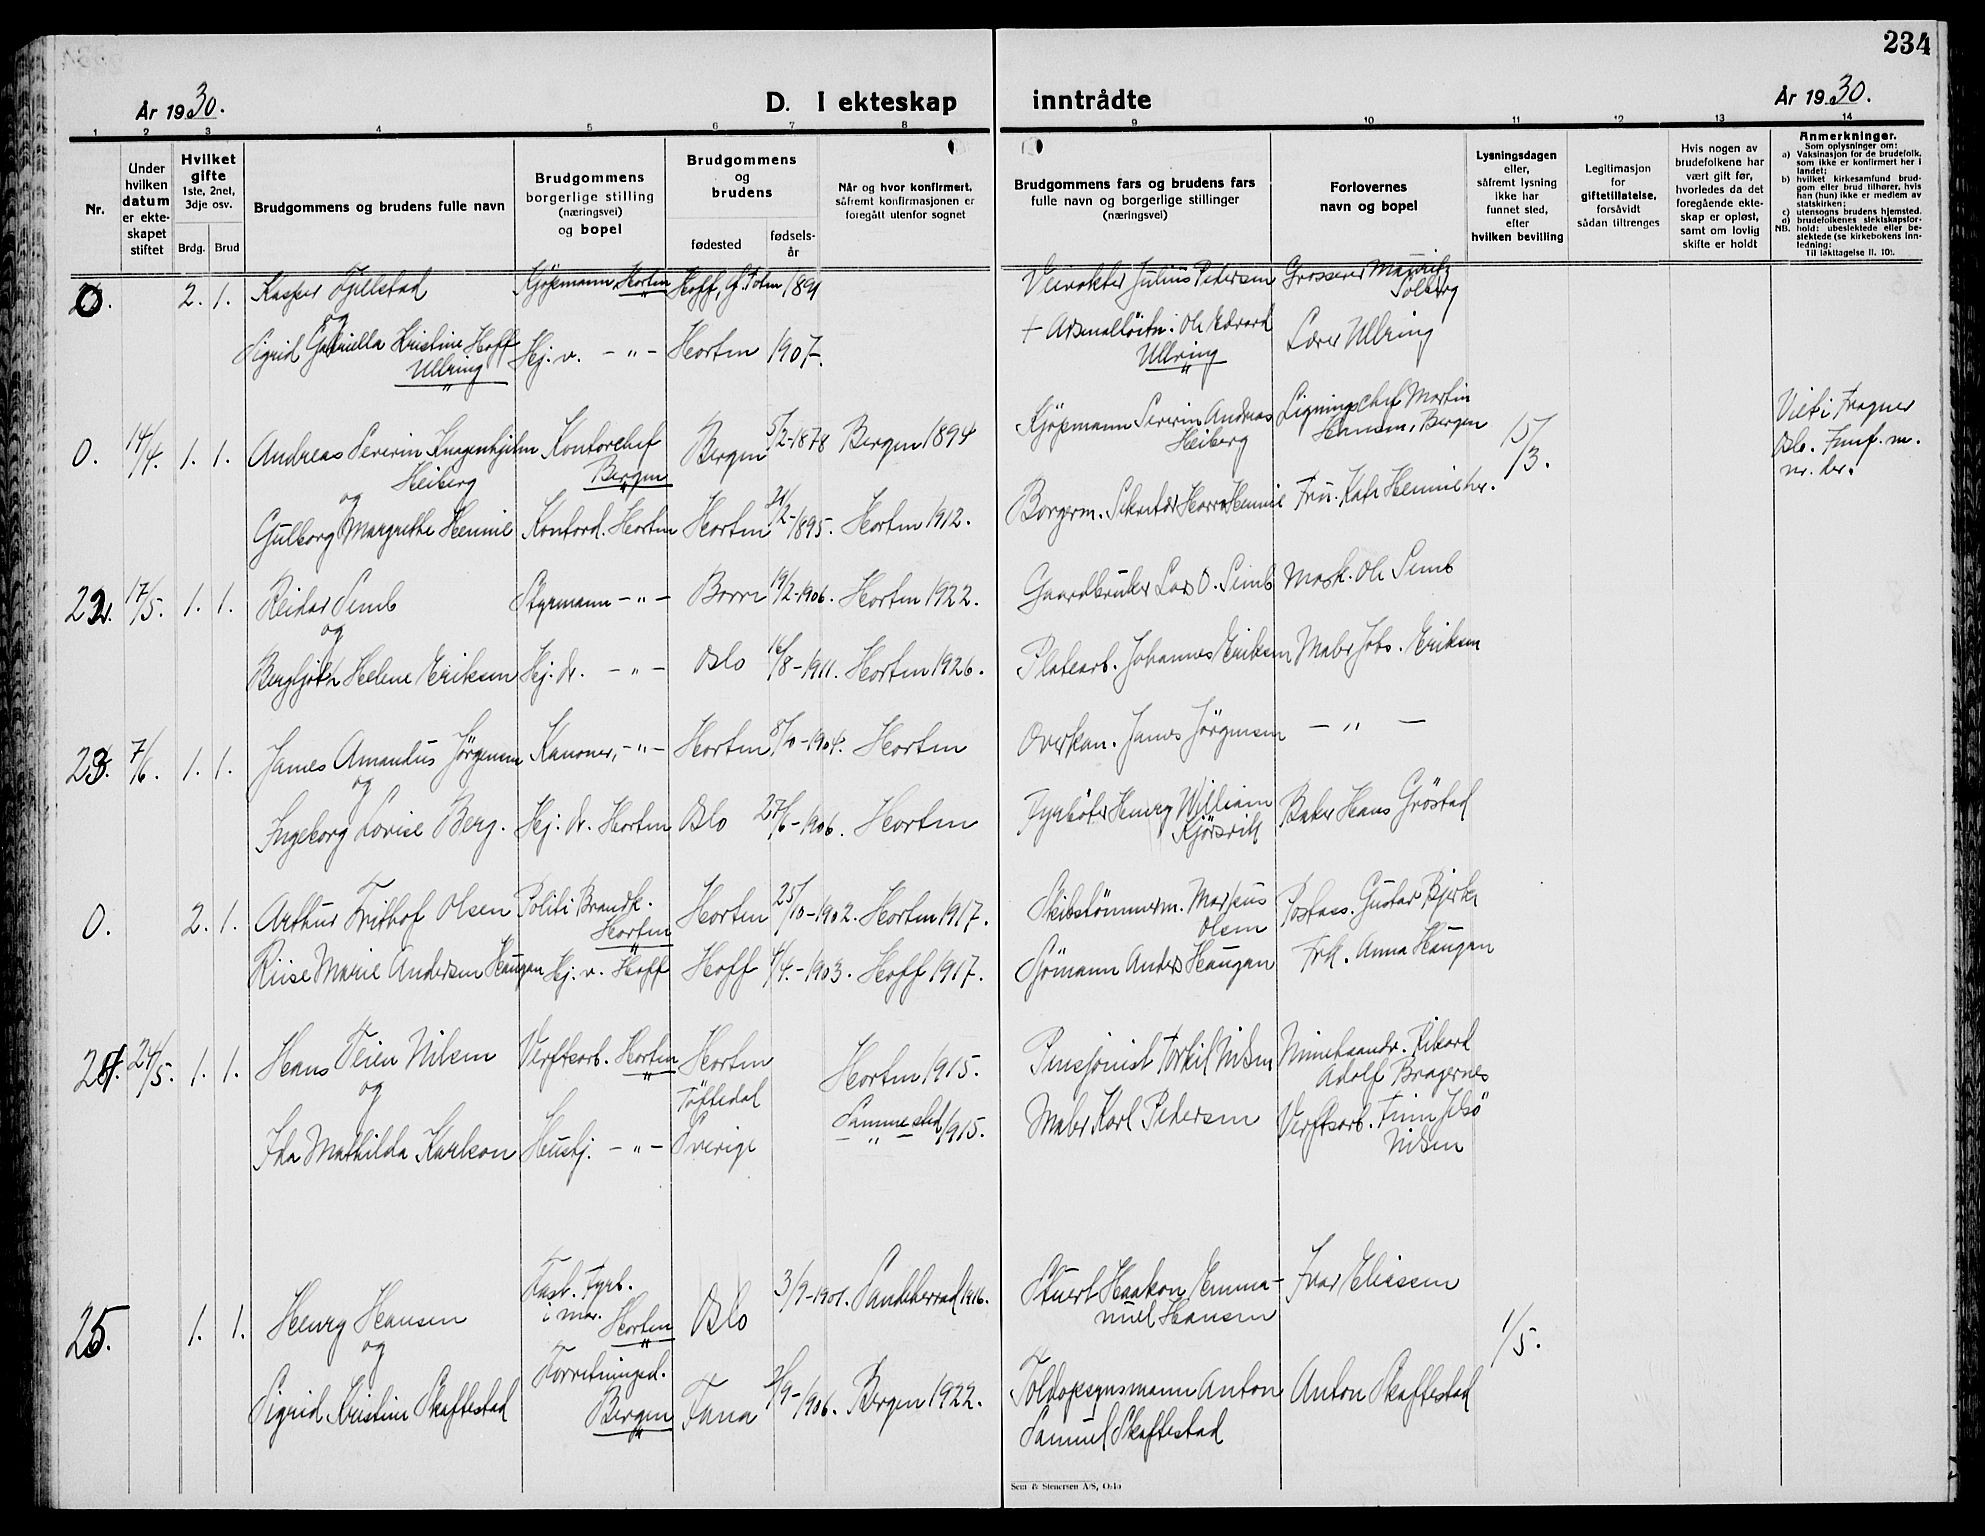 234
År 1930.
D. I ekteskap inntrådte
År 1930.
1 2 3 4 5 6 7 8 9 10 11 12 13 14
Nr.
Under
hvilken
datum
er ekte-
skapet
stiftet
Hvilket
gifte
1ste, 2net,
3dje osv.
Brdg. Brud
Brudgommens og brudens fulle navn
Brudgommens
borgerlige stilling
(næringsvei)
og bopel
Brudgommens
og
brudens
fødested
fødsels-
år
Når og hvor konfirmert,
såfremt konfirmasjonen er
foregått utenfor sognet
Brudgommens fars og brudens fars
fulle navn og borgerlige stillinger
(næringsvei)
Forlovernes
navn og bopel
Lysningsdagen
eller,
såfremt lysning
ikke har
funnet sted,
efter
hvilken bevilling
Legitimasjon
for
giftetillatelse,
forsåvidt
sådan tiltrenges
Hvis nogen av
brudefolkene har
vært gift før,
hvorledes da det
foregående ekte-
skap er opløst,
samt om lovlig
skifte er holdt
Anmerkninger.
Som oplysninger om:
a) Vaksinasjon for de brudefolk,
som ikke er konfirmert her i
landet;
b) hvilket kirkesamfund brud-
gom eller brud tilhører, hvis
han (hun) ikke er medlem av
statskirken;
c) utensogns brudens hjemsted.
d) brudefolkenes slektskapsfor-
hold: ubeslektede eller be-
slektede (se kirkebokens inn-
ledning:
NB.
Til iakttagelse II. 10).
0. 2. 1. Kasper Fjellstad Kjøpmann Horten Hoff, Ø. Toten 1891 Veivokter Julius Petersen Grosserer Mauritz
Solberg
og
Sigrid Gabriella Kristine Hoff
Ullring Hj. v. – " – Horten 1907. + Arsenalløitn. Ole Edvard
Ullring Lærer Ullring
0. 14/4. 1. 1. Andreas Severin Knagenhjelm
Heiberg Kontorchef
Bergen Bergen 5/2-1878 Bergen 1894 Kjöpmann Severin Andreas
Heiberg Ligningschef Martin
Hansen, Bergen 15/3. Viet i Frogner
Oslo.
og
Gulborg Margrethe Hennie Kontord. Horten Horten 21/2-1895. Horten 1912. Borgerm. Sekretær Hennie Fru
22. 17/5. 1. 1. Reidar Semb Styrmann – " – Borre 19/2-1906. Horten 1922. Gaardbruker Lars O. Semb Mask. Ole Semb
og
Bergljot Helene Eriksen Hj. dr. – " – Oslo 16/8-1911. Horten 1926. Platearb. Johannes Eriksen Maler Johs. Eriksen
23. 7/6. 1. 1. James Amandus Jørgensen Kanoner, – " – Horten 8/10-1904. Horten Overkan. James Jörgensen – " –
og
Ingeborg Lovise Berg. Hj. dr. Horten Oslo 27/6-1906. Horten Fyrböter Henry William
Kjörsvik Baker Hans Gröstad
0. 2. 1. Arthur Frithof Olsen Politi Brandk.
Horten Horten 25/10-1902. Horten 1917. Skibstömmerm. Markus
Olsen Postass. Gustav Bjerke
Riise Marie Andersen Haugan Hj. v. Hoff Hoff 4/4.-1903. Hoff 1917. Sjömann Anders Haugan Frk. Anna Haugen
24. 24/5. 1. 1. Hans Teien Nilsen Verftsarb. Horten Horten Horten 1915. Pensjonist Torkil Nilsen Rikard
Adolf Bragernes
og
Ida Mathilda Karlson Hushj. – " – Töftedal
Sverige Samme sted 1915. Maler Karl Pedersen Verftsarb. Finn
Nilsen
25. 1. 1. Henry Hansen Fast. Fyrb.
i mar.
Horten Oslo 3/9-1901. Sandeherred 1916. Stuert Haakon Emma-
nuel Hansen Ivar Eliassen 1/5.
og
Sigrid Kristine Skaftestad Forretningsd.
Bergen Fana 2/9-1906. Bergen 1922. Toldopsynsmann Anton
Samuel Skaftestad Anton Skaftestad
Sem & Stenersen A/S, Oslo